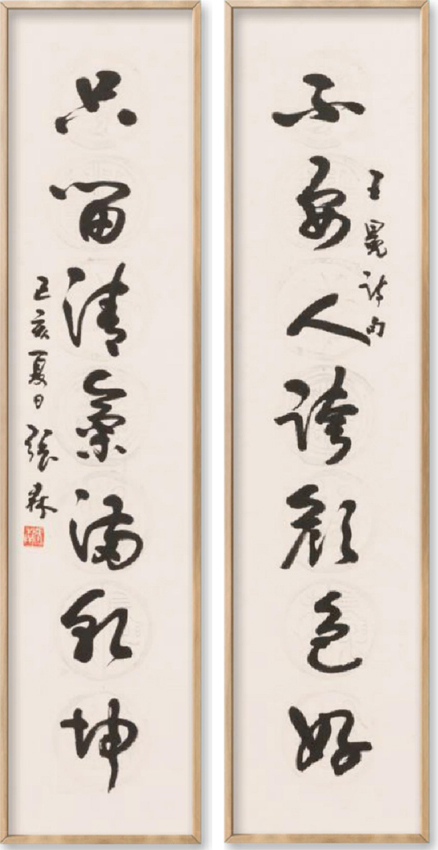 王冕詩句
不要人誇顏色好
只留清氣滿乾坤
己亥夏日張森